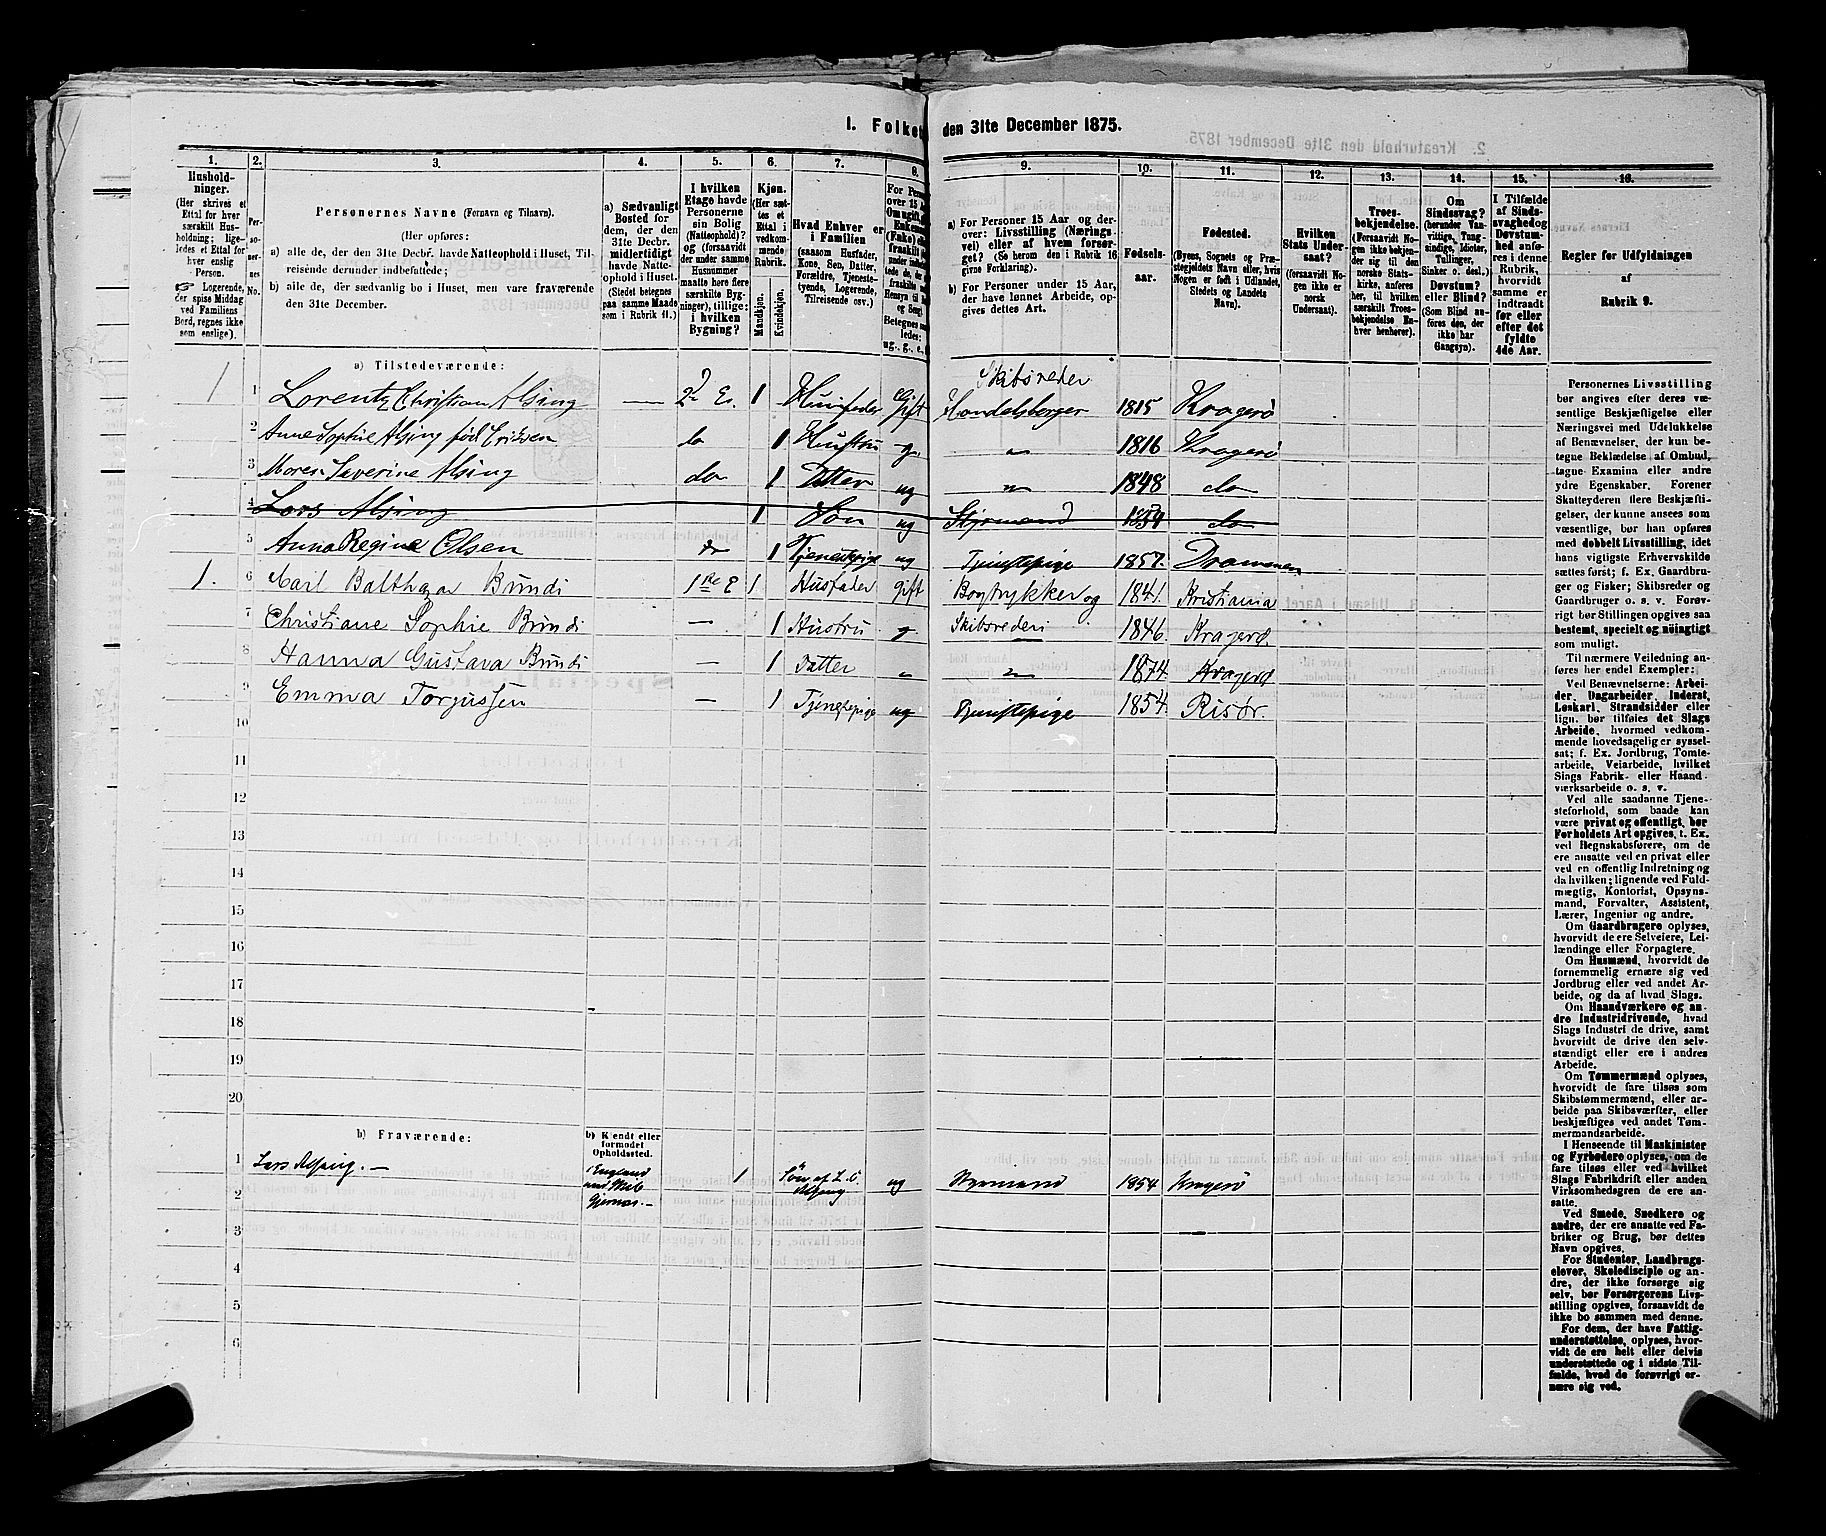 1. Folket
den 31te December 1875.
1.
2.
3.
4.
5.
6.
7.
8.
9.
10.
11.
12.
13.
14.
15.
16.
Hushold-
ninger.
(Her skrives et
Ettal for hver
særskilt Hus-
holdning; lige-
ledes et Ettal for
hver enslig
Person.
Logerende,
der spise Middag
ved Familiens
Bord, regnes ikke
som enslige).
Per-
so-
ner-
nes
No.
Personernes Navne (Fornavn og Tilnavn).
(Her opføres:
a) alle de, der den 31te Decbr. havde Natteophold i Huset, Til-
reisende derunder indbefattede;
b) alle de, der sædvanlig bo i Huset, men vare fraværende
den 31te December.
a) Sædvanligt
Bosted for
dem, der den
31te Decbr.
midlertidigt
havde Natte-
ophold i Huset.
(Stedet betegnes
paa samme Maade
som i Rubrik 11.)
I hvilken
Etage havde
Personerne
sin Bolig
(Natteophold)?
og (forsaavidt
der under samme
Husnummer
maatte høre flere
særskilte Byg-
ninger), tillige:
i hvilken
Bygning?
Kjøn.
(Her sæt-
tes et
Ettal i
vedkom-
mende
Rubrik.
Mandkjøn.
Kvindekjøn.
Hvad Enhver er
i Familien
(saasom Husfader,
Kone, Søn, Datter,
Forældre, Tjeneste-
tyende, Logerende,
Tilreisende osv.)
a) For Personer 15 Aar og der-
over: Livsstilling (Nærings-
vei) eller af hvem forsør-
get? (Se herom den i Rubrik 16
givne Forklaring).
b) For Personer under 15 Aar,
der have lønnet Arbeide, op-
gives dettes Art.
Fødsels-
aar.
Fødested.
(Byens, Sognets og Præ-
stegjeldets Navn eller, hvis
Nogen er født i Udlandet,
Stedets og Landets
Navn).
Hvilken
Stats Under-
saat?
(forsaavidt No-
gen ikke er
norsk
Undersaat).
Troes-
bekjendelse.
(Forsaavidt No-
gen ikke bekjen-
der sig til den
norske Stats-
kirke, anføres
her, til hvilken
særskilt Troes-
bekjendelse En-
hver henhører).
Om
Sindssvag?
(herunder Van-
vittige, Tung-
sindige, Idioter,
Tullinger,
Sinker o. desl.)
Døvstum?
eller Blind?
(Som Blind an-
føres den, der
ikke har
Gangsyn).
I Tilfælde
af Sinds-
svaghed og
Døvstum-
hed anfø-
res i denne
Rubrik,
hvorvidt
samme er
indtraadt
før eller
efter det
fyldte
4de Aar.
Regler for Udfyldningen
af
Rubrik 9.
a) Tilstedeværende:
Skibsreder
1 1 Lorentz Christian Alsing — 2 Et. 1 Husfader Gift Handelsborger 1815 Kragerø
2 Anne Sophie Alsing fød Eriksen do 1 Hustru g. " 1816 Kragerø
3 Maren Severine Alsing do 1 Datter ug " 1848 do
4 Lars Alsing 1 Søn ug Styrmand 1854 do
5 Anna Regine Olsen do 1 Tjenestepige ug Tjenestepige 1857. Drammen
1. 6 Carl Balthazar Bundi 1ste E 1 Husfader gift Bogtrykker og 1841. Kristiania
7 Christiane Sophie Bundi — 1 Hustru g Skibsrederi 1846. Kragerø.
8 Hanna Gustava Bundi — 1 Datter " " 1874. Kragerø
9 Emma Torgussen — 1 Tjenestepige ug Tjenestepige 1854. Risør.
10
11
12
13
14
15
16
17
18
19
20
b) Fraværende:
b) Kjendt eller
formodet
Opholdssted.
1 Lars Alsing. — England 1 Søn af L. C. Alsing ug Styrmand 1854 Kragerø
2
3
4
5
6
Personernes Livsstilling
bør angives efter deres væ-
sentlige Beskjæftigelse eller
Næringsvei med Udelukkelse
af Benævnelser, der kun be-
tegne Beklædelse af Ombud,
tagne Examina eller andre
ydre Egenskaber. Forener
Skatteyderen flere Beskjæfti-
gelser, der kunne ansees som
væsentlige, bør han opføres
med dobbelt Livsstilling, idet
hans vigtigste Erhvervskilde
sættes først; f. Ex. Gaardbru-
ger og Fisker; Skibsreder og
Gaardbruger o. s. v. Forøv-
rigt bør Stillingen opgives saa
bestemt, specielt og nøiagtigt
som muligt.
Til nærmere Veiledning an-
føres her endel Exempler:
Ved Benævnelserne: Arbei-
der, Dagarbeider, Inderst,
Løskarl, Strandsidder eller
lign. bør tilføies det Slags
Arbeide, hvormed vedkom-
mende hovedsagelig er syssel-
sat; f. Ex. Jordbrug, Tomte-
arbeide, Veiarbeide, hvilket
Slags Fabrik- eller Haand-
værksarbeide o. s. v.
Ved alle saadanne Tjene-
steforhold, som baade kan
være privat og offentligt, bør
Forholdets Art opgives, t. Ex.
ved Regnskabsførere, om de
ere ansatte ved en privat eller
ved en offentlig Indretning og
da hvilken; lignende ved Fuld-
mægtig, Kontorist, Opsyns-
mand, Forvalter, Assistent,
Lærer, Ingeniør og andre.
Om Gaardbrugere oplyses,
hvorvidt de ere Selveiere, Lei-
lændinge eller Forpagtere.
Om Husmænd, hvorvidt de
fornemmelig ernære sig ved
Jordbrug eller ved andet Ar-
beide, og da af hvad Slags.
Om Haandværkere og an-
dre Industridrivende, hvad
Slags Industri de drive, samt
hvorvidt de drive den selv-
stændigt eller ere i andres
Arbeide.
Om Tømmermænd oplyses,
hvorvidt de fare tilsøs som
Skibstømmermænd, eller ar-
beide paa Skibsværfter, eller
beskjæftiges ved andet Tøm-
mermandsarbeide.
I Henseende til Maskinister
og Fyrbødere oplyses, om de
fare tilsøs eller ved hvilket
Slags Fabrikdrift eller anden
Virksomhedsgren de ere an-
satte.
Ved Smede, Snedkere og
andre, der ere ansatte ved Fa-
briker og Brug, bør dettes
Navn opgives.
For Studenter, Landbrugs-
elever, Skoledisciple og an-
dre, der ikke forsørge sig
selv, bør Forsørgerens Livs-
stilling opgives, forsaavidt de
ikke bo sammen med denne.
For dem, der have Fattig-
understøttelse, oplyses, hvor-
vidt de ere helt eller delvis
understøttede og i sidste Til-
fælde, hvad de forøvrigt er-
nære sig ved.